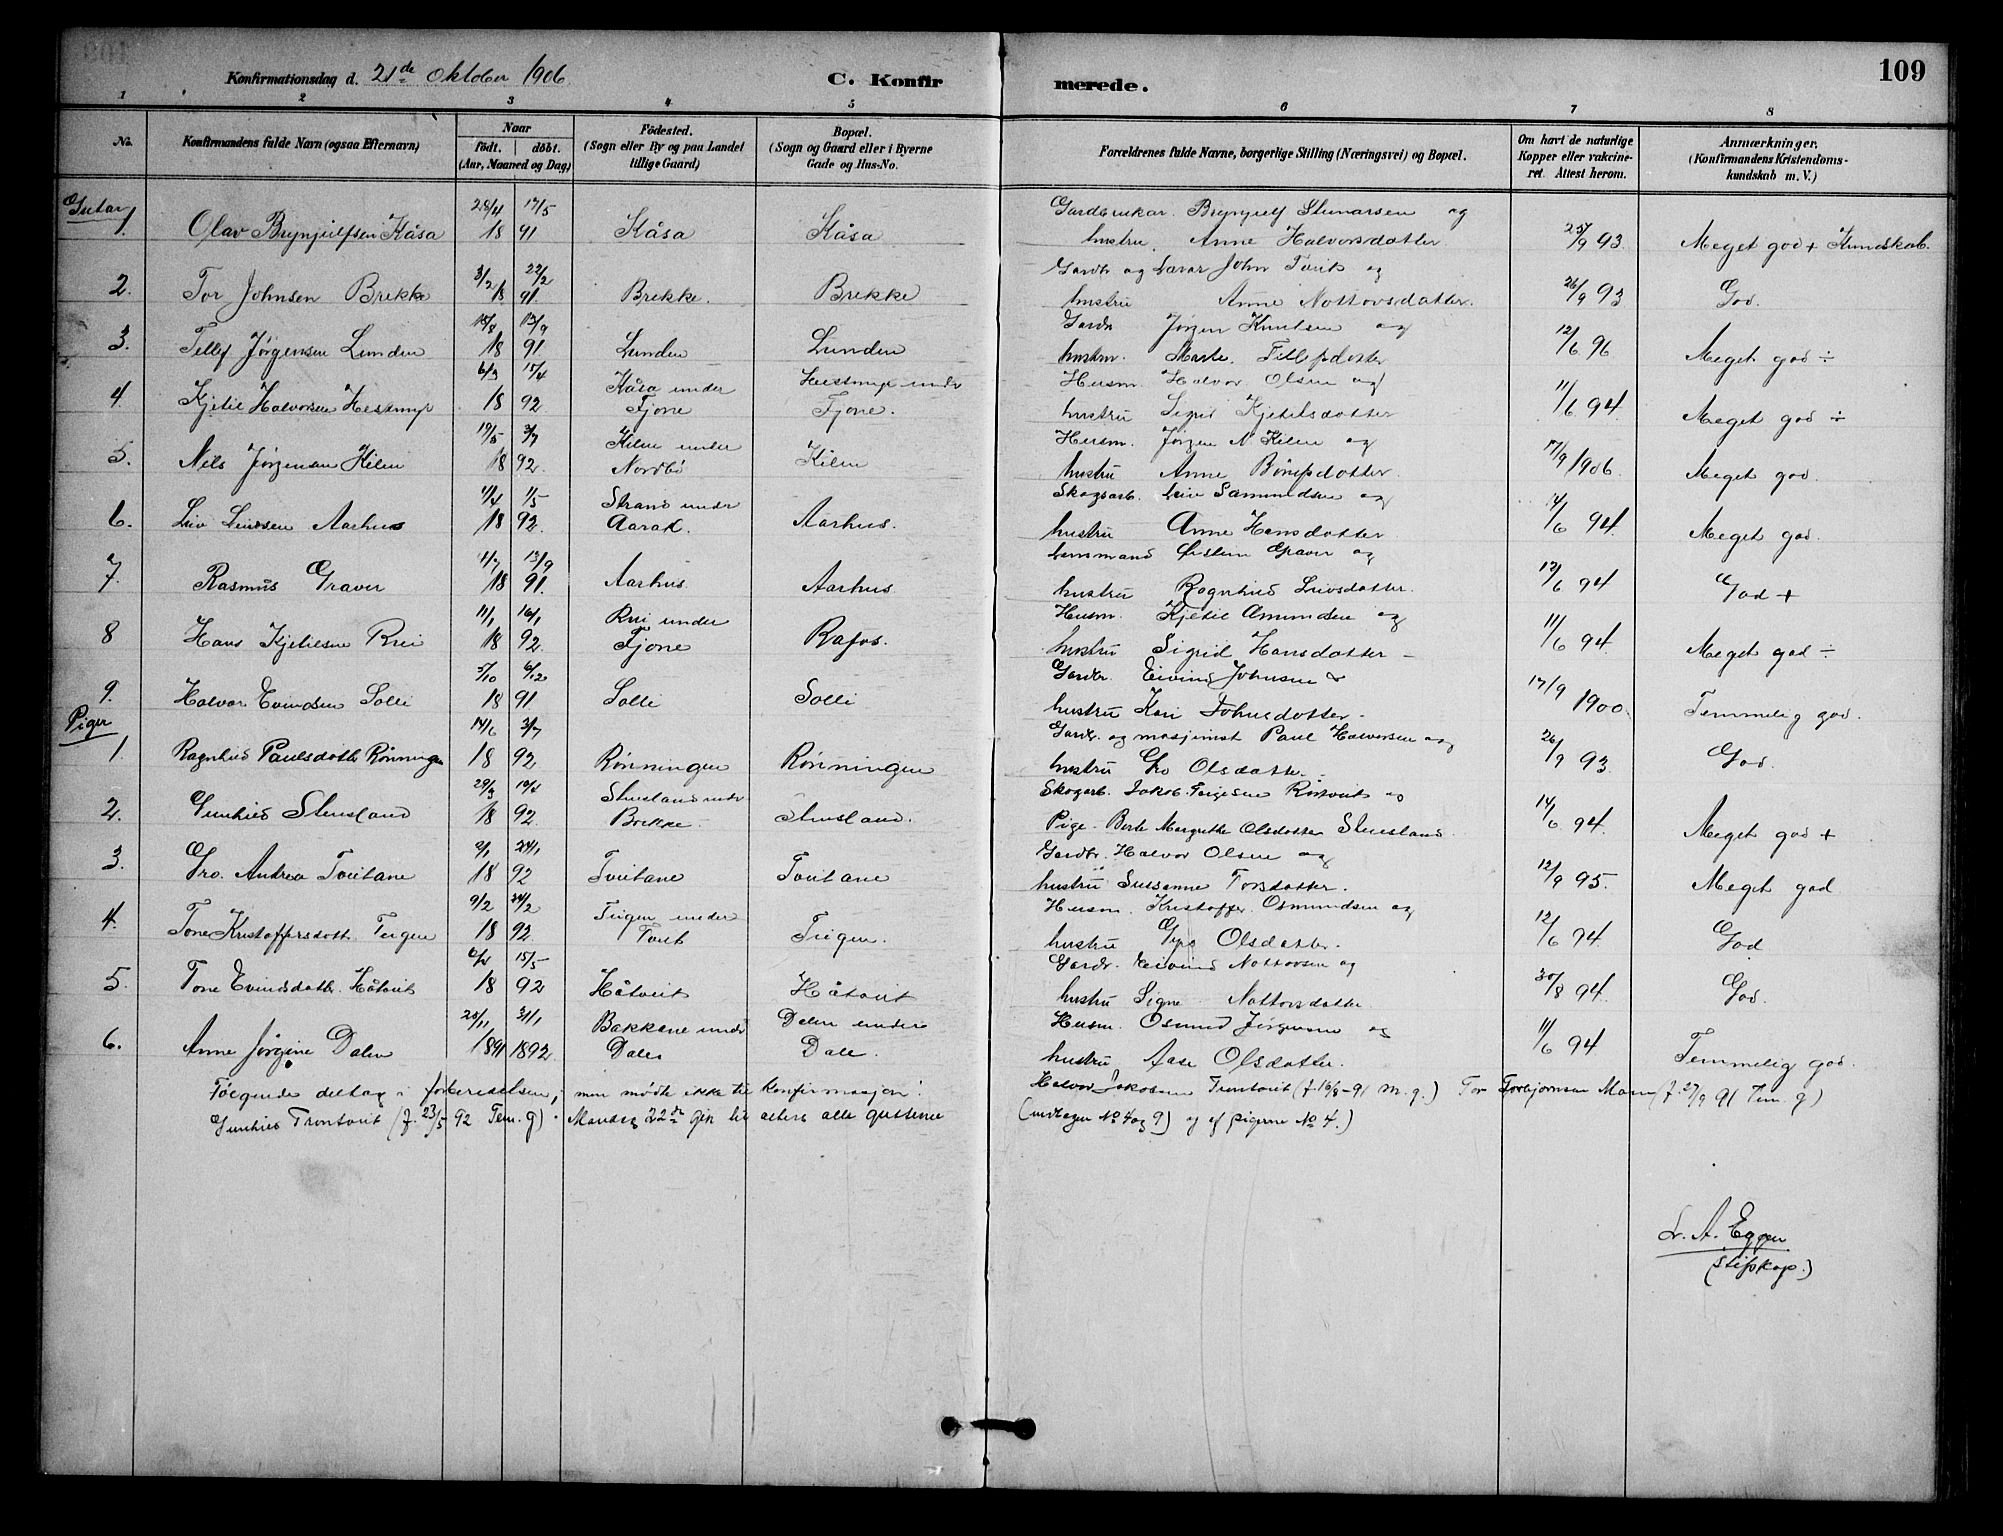 109
Konfirmationsdag d. 21de Oktober 1906
C. Konfirmerede.
1 2 3 4 5 6 7 8
No.
Konfirmandens fulde Navn (ogsaa Efternavn)
Naar
födt. döbt.
(Aar, Maaned og Dag)
Födested.
(Sogn eller By og paa Landet
tillige Gaard)
Bopæl.
(Sogn og Gaard eller i Byerne
Gade og Hus-No.
Forældrenes fulde Navne, borgerlige Stilling (Næringsvei) og Bopæl.
Om havt de naturlige
Kopper eller vakcine-
ret. Attest herom.
Anmærkninger.
(Konfirmandens Kristendoms-
kundskab m. V.)
Gutar
1. Olav Brynjulfsen Kåsa 28/4 18 17/5 91 Kåsa Kåsa Gardbrukar Brynjulf Stenarsen og
hustru Anne Halvorsdatter 25/9 93. Meget god + Kundskab.
2. Tor Johnsen Brekke 3/2 18 22/2 91. Brekke. Brekke Gardbr og Lærar John Tveit og
hustru Anne Nottovsdatter. 26/9 93 God.
3. Tellef Jørgensen Lunden 15/8 18 13/9 91. Lunden Lunden Gardbr Jørgen Knutsen og
hustru. Marte Tellefsdotter 12/6 96 Meget god ÷
4. Kjetil Halvorsen Hestmyr 6/3 18 15/4 92 Kåsa under Fjone Hestmyr under Fjone. Husm. Halvor Olsen og
hustru Sigrid Kjetilsdotter 11/6 94 Meget god ÷
5. Nils Jørgensen Kilen 19/5 18 3/7 92. Kilen under Nordbö Kilen Husm. Jørgen N. Kilen og
hustru Anne 17/9 1906 Meget god.
6. Leiv Leivsen Aarhus 11/4 18 1/5 92. Strand under Aarak. Aarhus. Skogsarb. Leiv Samundsen og
hustru Anne Hansdotter 14/6 94 Meget god.
7. Rasmus Graver 11/7 18 13/9 91. Aarhus Aarhus. Lensmand Øistein Graver og
hustru Ragnhild Leivsdotter. 12/6 94 God +
8 Hans Kjetilsen Rui 11/1 18 16/1 92. Rui under Fjone Rafos. Husm. Kjetil Amundsen og
hustru Sigrid Hansdotter 11/6 94. Meget god ÷
9. Halvor Evindsen Solli 5/10 18 6/12 91 Solli Solli Gardbr. Eivind Johnsen &
hustru Kari Johnsdotter 17/9 1900. Temmelig god.
Piger
1. Ragnhild Paulsdotter Rønningen 14/6 18 3/7 92 Rønningen Rønningen Gardbr. og masjinist Paul Halvorsen og
hustru Gro Olsdotter. 26/9 93. God.
2. Gunhild Stensland 29/3 18 10/4 92. Stensland under Brekke. Stensland. Skogarb. Jakob Tergesen og
Pige Berte Margrethe Olsdotter Stensland. 14/6 94. Meget god +
3. Gro Andrea Tveitane 9/1 18 24/1 92 Tveitane Tveitane Gardbr. Halvor Olsen og
hustru Sussanne Torsdotter. 12/9 95. Meget god
4. Tone Kristoffersdott. Teigen 9/2 18 24/2 92. Teigen under Tveit Teigen. Husm. Kristoffer Osmundsen og
hustru Olsdotter. 12/6 94. God
5. Tone Evindsdotter Håtveit 18 15/5 92 Håtveit Håtveit Gardbr. Eivind Nottovsen og
hustru Signe Nottovsdotter 30/8 94. God.
6. Anne Jørgine Dalen 25/11 1891 31/1 1892. Bakkane under Dalen Dalen under Dale. Husm. Osmund Jørgensen og
hustru Aase Olsdotter. 11/6 94 Temmelig god.
Følgende deltog i forberedelsen, men mødte ikke til konfirmasjon: Halvor Jakobsen Trontveit (f. 16/8-91 M. g.) Tor Torbjørnsen Moen (f. 27/9 91 Tem. g)
Gunhild Trontveit (f. 23/5 92 Tem. g) . Mandag 22de gik til alters alle gutterne (undtagen No 4 og 9) og af pigerne No 4.)
L. A. Eggen
(Stifskap.)